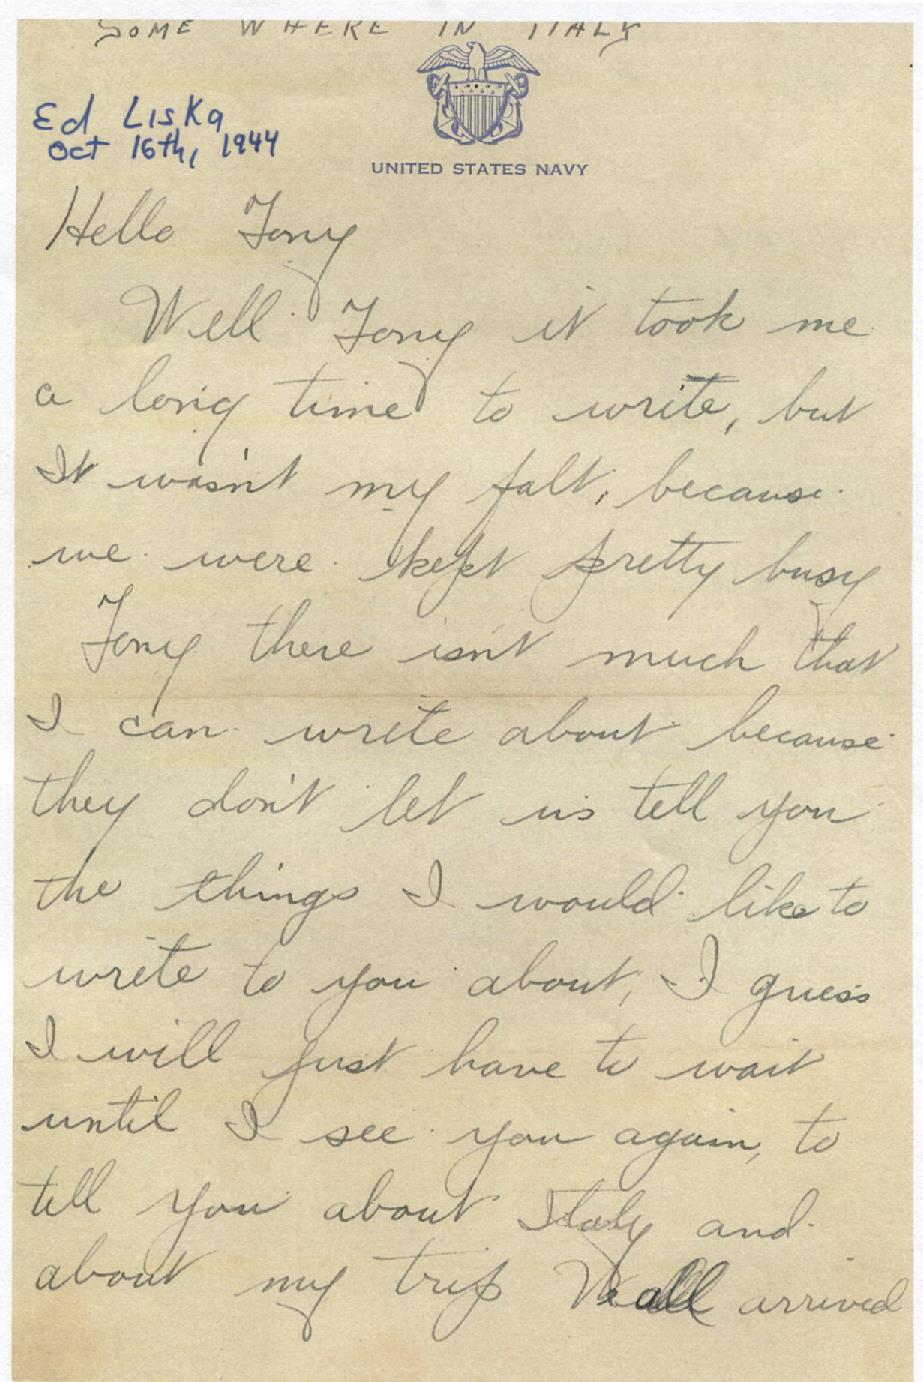 SOME WHERE IN ITALY
Ed Liska
Oct 16th, 1944
UNITED STATES NAVY
Hello Tony
Well Tony it took me
a long time to write, but
It wasn't my falt, because
we were kept pretty busy
Tony there isn't much that
I can write about because
they don't let us tell you
the things I would like to
write to you about, I guess
I will just have to wait
until I see you again, to
tell you about Italy and
about my trip We all arrived